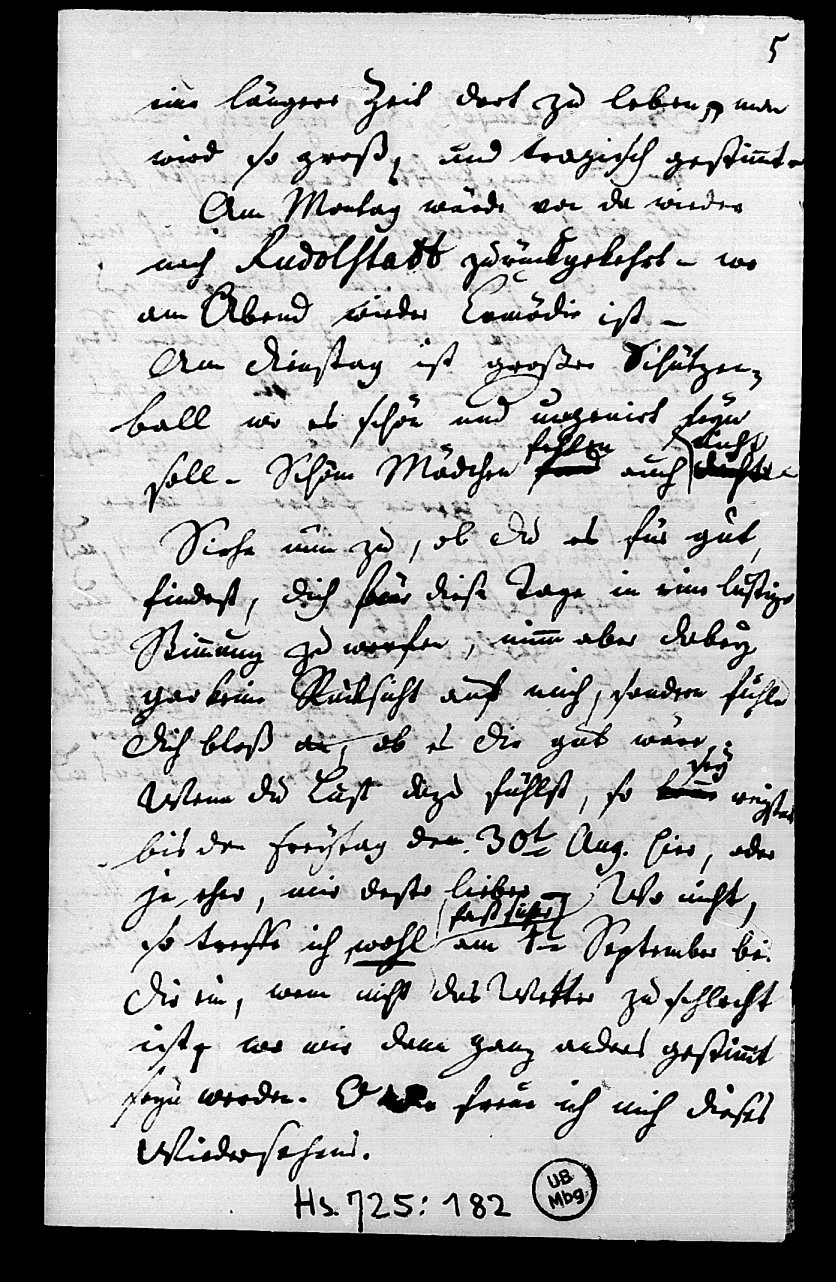 5
eine längere Zeit dort zu leben, man
wird so groß, und tragisch gestimmt –
Am Montag würde von da wieder
nach Rudolstatt zurückgekehrt – wo
am Abend wieder Comödie ist –
Am Dienstag ist großer Schützen=
ball wo es schön und ungenirt seyn
soll – Schöne Mädchen fehlen auch nicht –
Siehe nun zu, ob Du es für gut
findest, Dich für diese Tage in eine lustige
Stimmung zu werfen, nimm aber dabey
gar keine Rücksicht auf mich, sondern fühle
Dich bloß an, ob es Dir gut wäre.
Wenn du Lust dazu fühlst, so sey
bis den Freytag den 30t Aug. hier, oder
je eher, mir desto lieber – Wo nicht,
so treffe ich wohl fast sicher am September bei
Dir ein, wenn nicht das Wetter zu schlecht
ist, wo wir dann ganz anders gestimmt
seyn werden. freue ich mich dieses
Wiedersehens.
Hs. 725: 182
UB
Mbg.